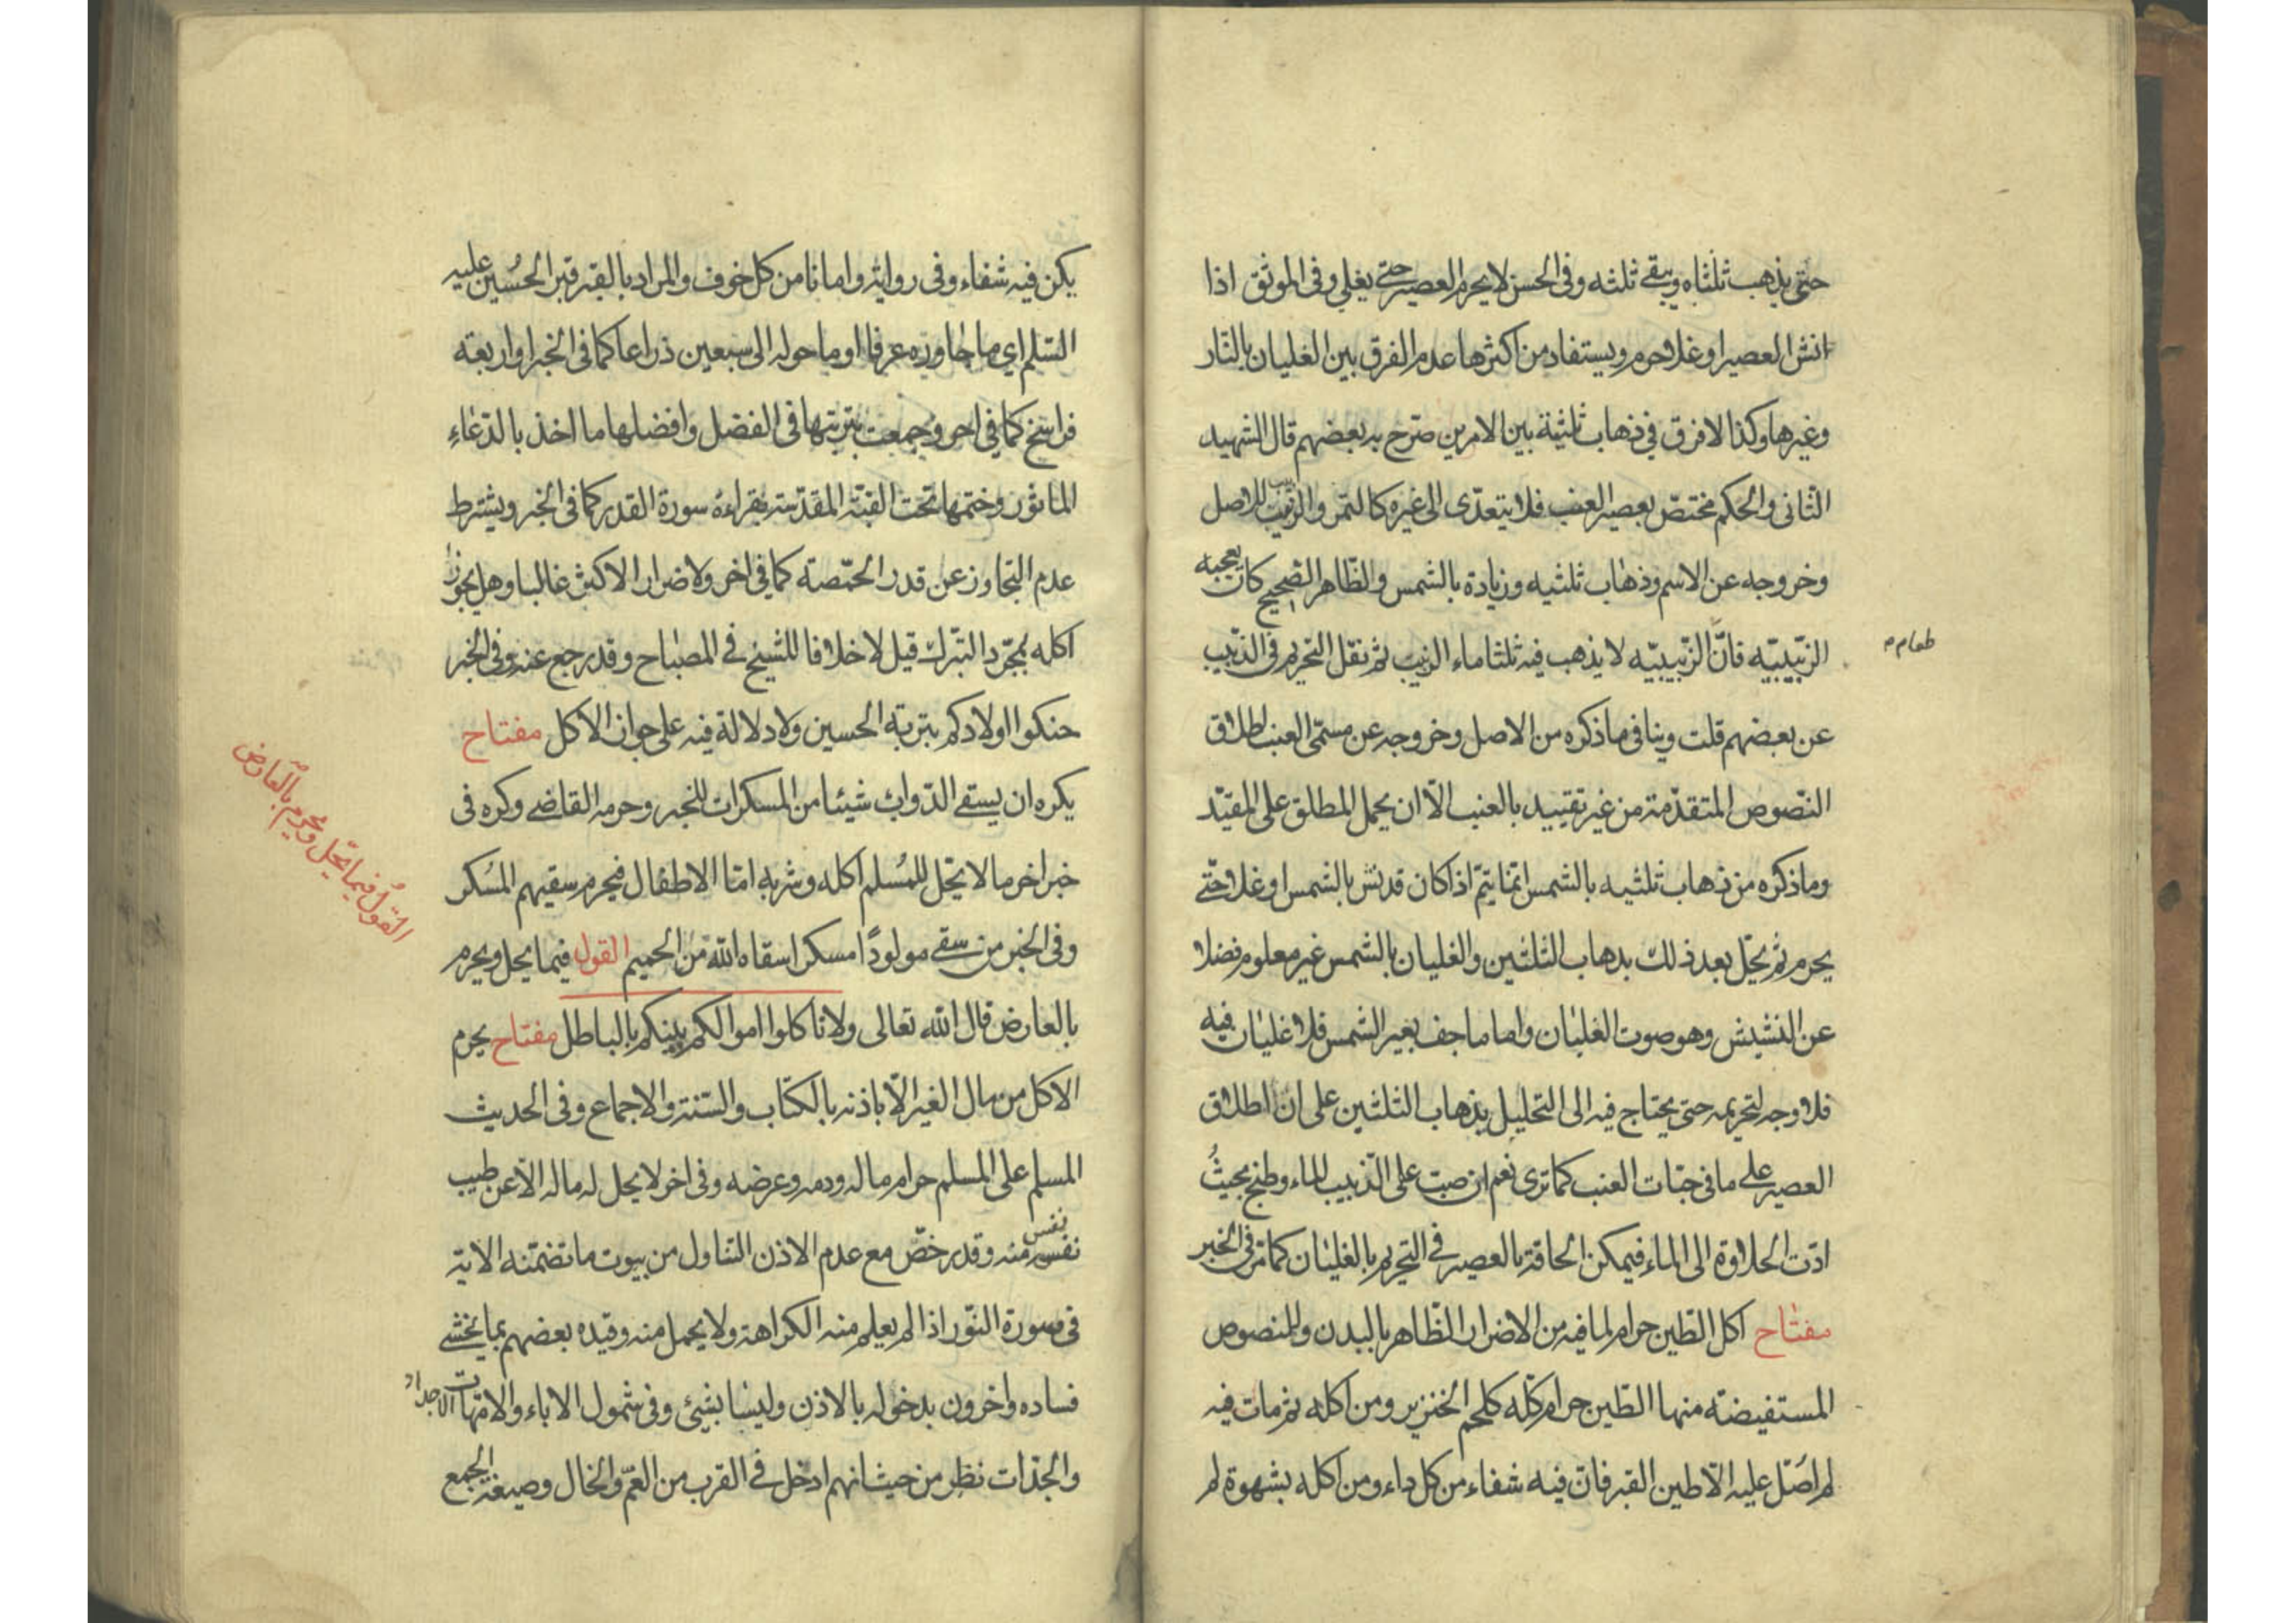 حتى يذهب ثلثاه ويبقى ثلثه وفى الحسن لا يحرم العصير حتى يغلي وفى الموثق اذا
انش العصير او غلا حرم ويستفاد من اكثرها عدم الفرق بين الغليان بالنار
وغيرها وكذا لا فرق في ذهاب ثلثيه بين الامرين صرح به بعضهم قال الشهيد
الثانى والحكم مختص بعصير العنب فلا يتعدى الى غيره كالتمر والزبيب للاصل
وخروجه عن الاسم وذهاب ثلثيه وزيادة بالشمس والظاهر الصحيح كان يعجبه
الزبيبيه فان الزبيبيه لا يذهب فيه ثلثا ماء الزبيب ثم نقل التحريم فى الذبيب
طعام م
عن بعضهم قلت وينافى ما ذكره من الاصل وخروجه عن مسمى العنب اطلاق
النصوص المتقدمة من غير تقييد بالعنب الا ان يحمل المطلق على المقيد
وما ذكره من ذهاب ثلثيه بالشمس انما يتم اذا كان قد نش بالشمس او غلا حتى
يحرم ثم يحل بعد ذلك بذهاب الثلثين والغليان بالشمس غير معلوم فضلا
عن النشيش وهو صوت الغليان واما ما جف بغير الشمس فلا غليان فيه
فلا وجه لتحريمه حتى يحتاج فيه الى التحليل بذهاب الثلثين على ان اطلاق
العصير على ما فى حبات العنب كما ترى نعم ان صب على الذبيب الماء وطبخ بحيث
ادت الحلاوة الى الماء فيمكن الحاقه بالعصير فى التحريم بالغليان كما مر فى الخبر
مفتاح اكل الطين حرام لما فيه من الاضرار الظاهر بالبدن وللنصوص
المستفيضة منها الطين حرام كله كلحم الخنزير ومن اكله ثم مات فيه
لم اصل عليه الا طين القبر فان فيه شفاء من كل داء ومن اكله بشهوة لم
يكن فيه شفاء وفى رواية وامانا من كل خوف والمراد بالقبر قبر الحسين عليه
السلم اي ما جاوره عرفا او ما حوله الى سبعين ذراعا كما فى الخبر او اربعة
فراسخ كما فى اخر وجمعت بترتيبها فى الفضل وافضلها ما اخذ بالدعاء
الماثور وختمها تحت القبة المقدسة بقراءة سورة القدر كما فى الخبر ويشترط
عدم التجاوز عن قدر الحمصة كما فى اخر ولاضرار الاكثر غالبا وهل يجوز
اكله بمجرد التبرك قيل لا خلافا للشيخ فى المصباح وقد رجع عنه وفى الخبر
حنكوا اولادكم بتربة الحسين ولا دلالة فيه على جواز الاكل مفتاح
يكره ان يسقى الدواب شيئا من المسكرات للخبر وحرمه القاضى وكره فى
خبر اخر ما لا يحل للمسلم اكله وشربه اما الاطفال فيحرم سقيهم المسكر
وفى الخبر من سقى مولودا مسكرا سقاه الله من الحميم القول فيما يحل ويحرم
القول فيما يحل ويحرم بالعارض
بالعارض قال الله تعالى ولا تاكلوا اموالكم بينكم بالباطل مفتاح يحرم
الاكل من مال الغير الا باذنه بالكتاب والسنة والاجماع وفى الحديث
المسلم على المسلم حرام ماله ودمه وعرضه وفى اخر لا يحل له ماله الا عن طيب
نفس
نفسه منه وقد رخص مع عدم الاذن التناول من بيوت ما تضمنه الاية
فى سورة النور اذا لم يعلم منه الكراهة ولا يحمل منه وقيده بعضهم بما يخشى
فساده واخرون بدخوله بالاذن وليسا بشيئ وفى شمول الاباء والامهات الاجداد
والجدات نظر من حيث انهم ادخل فى القرب من العم والخال وصيغة الجمع